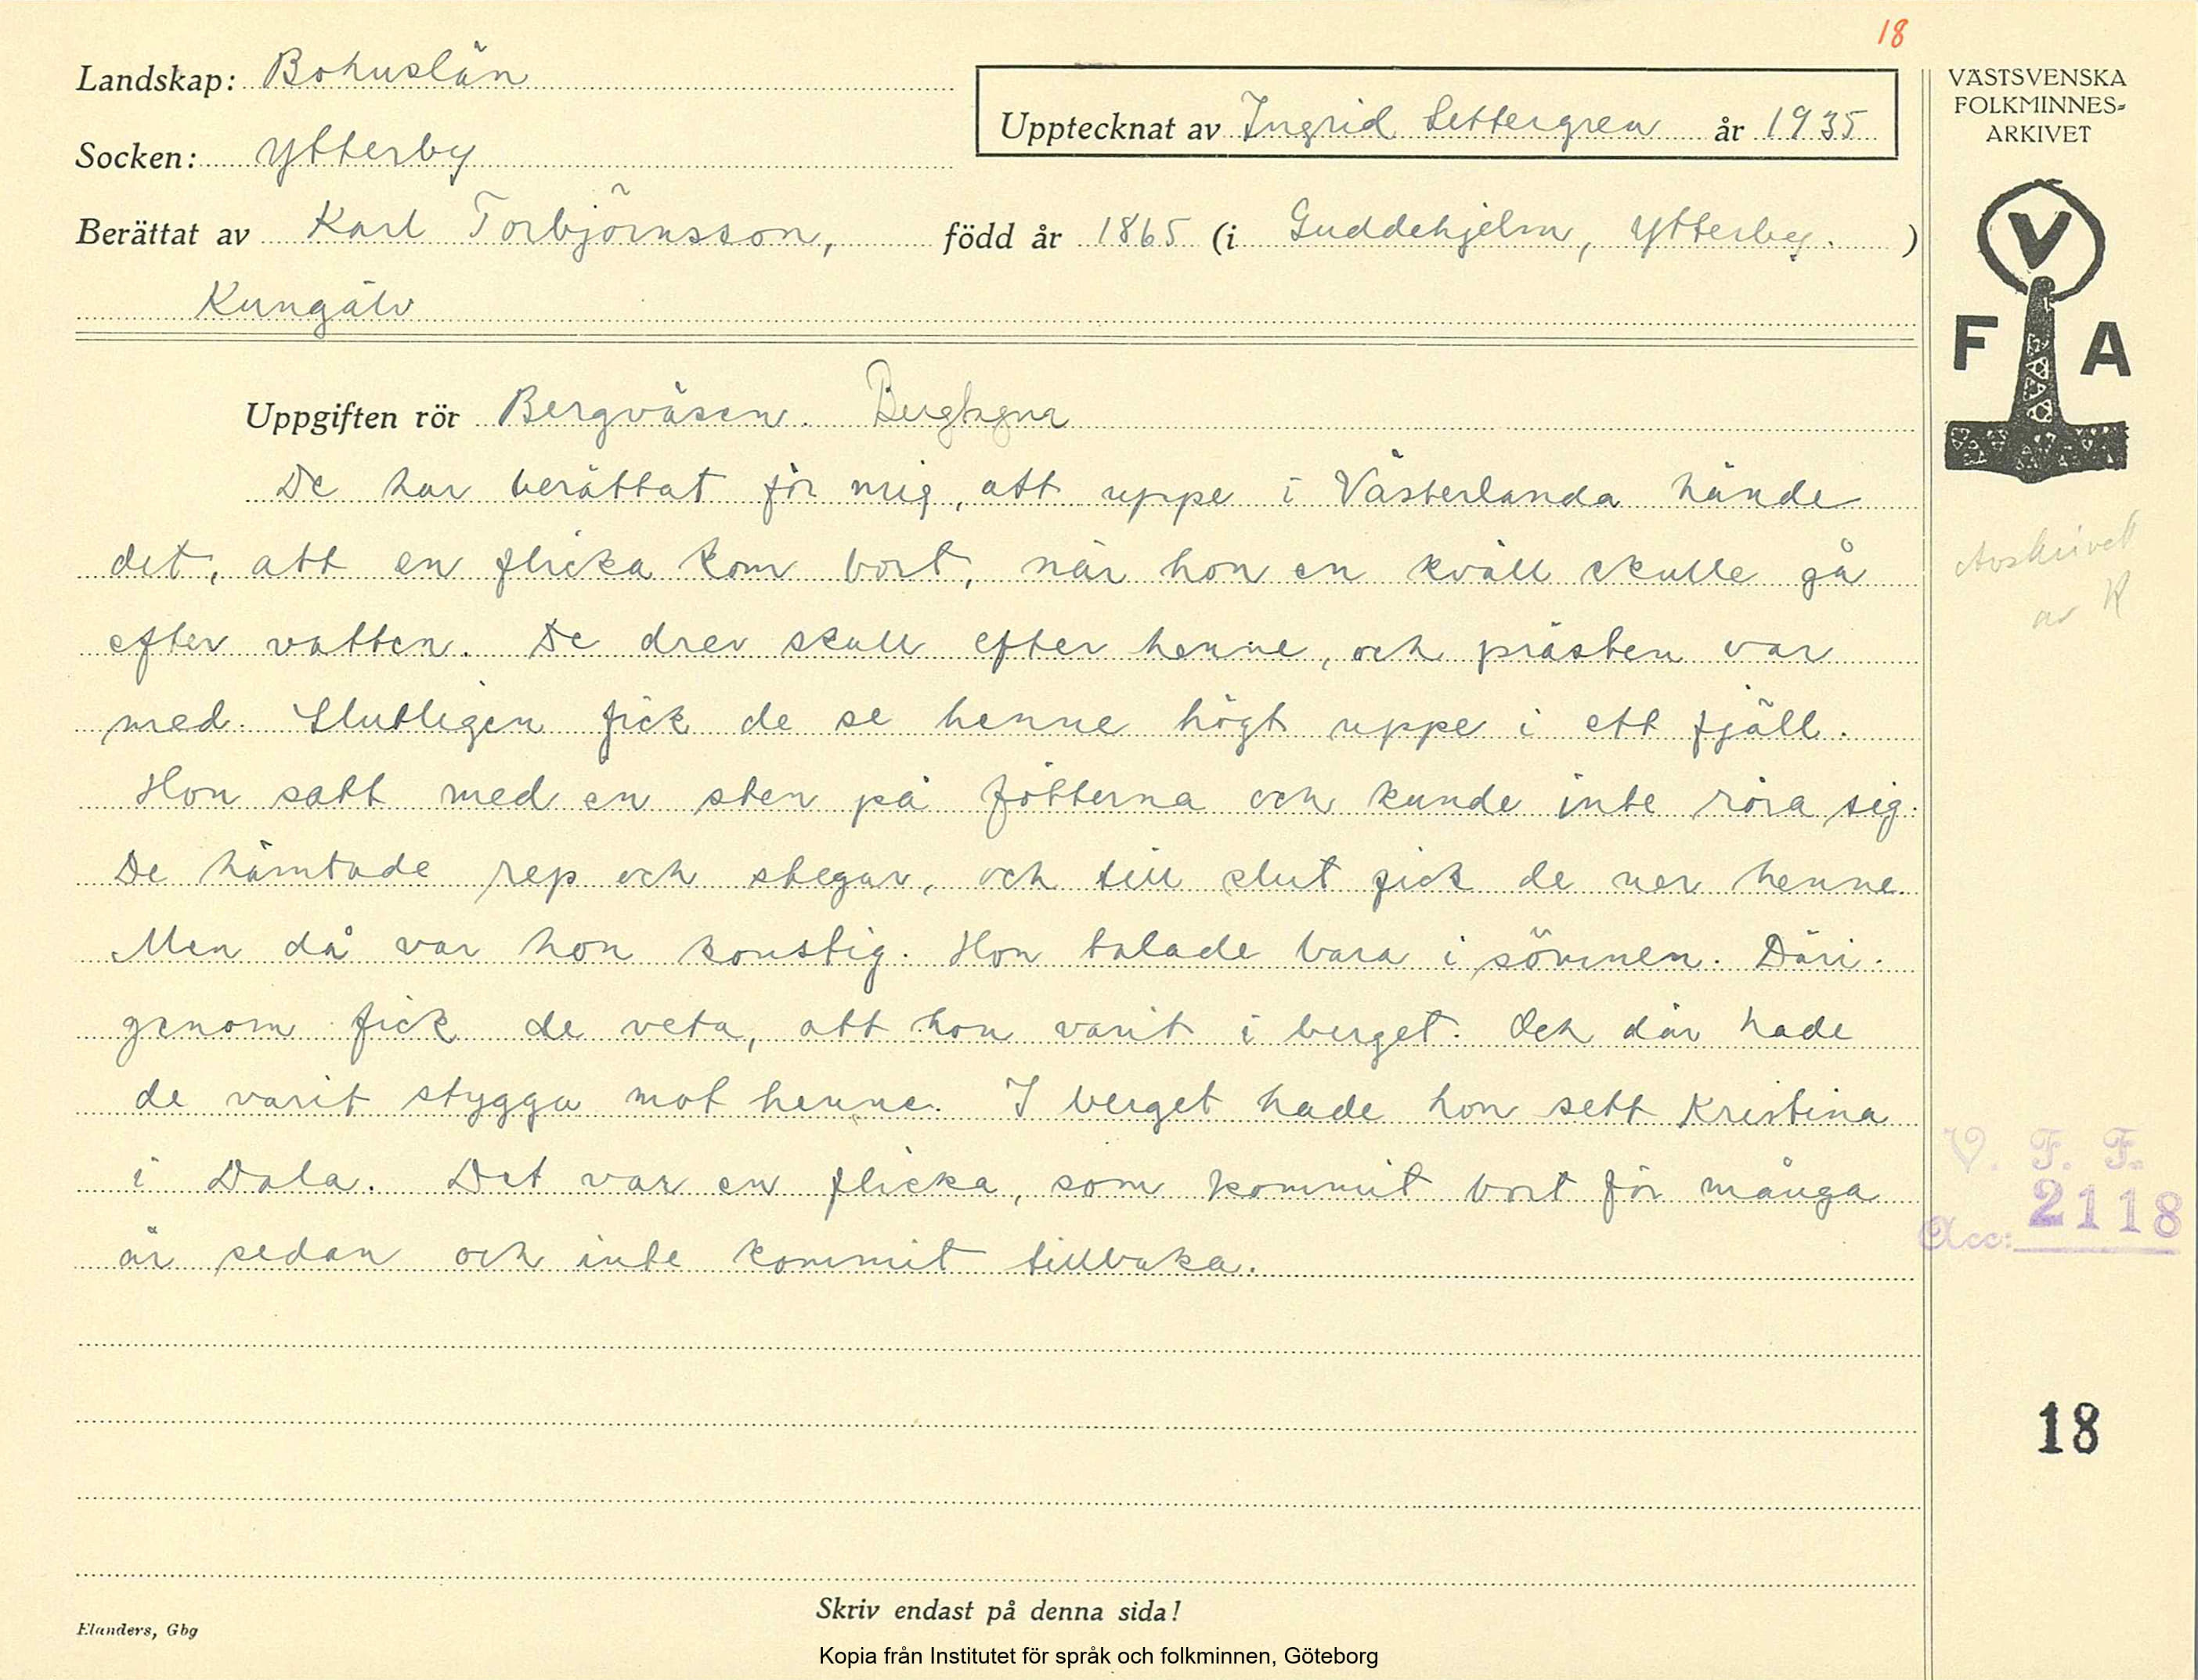 18
Landskap: Bohuslän
Socken: Ytterby
Upptecknat av Ingrid Settergren år 1935
Berättat av Karl Torbjörnsson, född år 1865 (i Guddehjelm, Ytterby. )
Kungälv
VÄSTSVENSKA
FOLKMINNES-
ARKIVET
V
F A
Uppgiften rör Bergväsen.
De har berättat för mig, att uppe i Västerlanda hände
det, att en flicka kom bort, när hon en kväll skulle gå
efter vatten. De drev skall efter henne, och prästen var
med. Slutligen fick de se henne högt uppe i ett fjäll.
Hon satt med en sten på fötterna och kunde inte röra sig.
De hämtade rep och stegar, och till slut fick de ner henne.
Men då var hon konstig. Hon talade bara i sömnen. Däri-
genom fick de veta, att hon varit i berget. Och där hade
de varit stygga mot henne. I berget hade hon sett Kristina
i Dala. Det var en flicka, som kommit bort för många
år sedan och inte kommit tillbaka.
Avskrivet
av K
V. F. F.
Acc: 2118
18
Skriv endast på denna sida!
Elanders, Gbg
Kopia från Institutet för språk och folkminnen, Göteborg